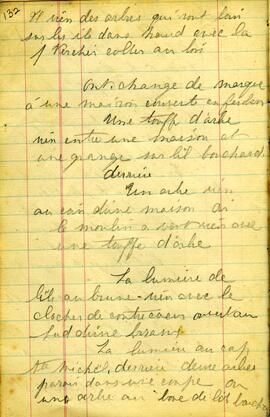 132
vien des arbres qui sont loin
sur les ile dans nord avec la
f Rocher coller au bois
ont change de marque
à une maison couverte en
Une touffe d'arbre
vien entre une maison et
une grange sur l'il bouchard
derrière
Un arbre vien
au coin d'une maison où
le moulin a vent vien avec
une touffe d'arbre
La lumière de
l'ile au brune vien avec le
clocher de contrecoeur
sud d'une
La lumière au cap
St Michel, derrière d'une arbre
parois dans une coupe ou
une arbre au de l'il